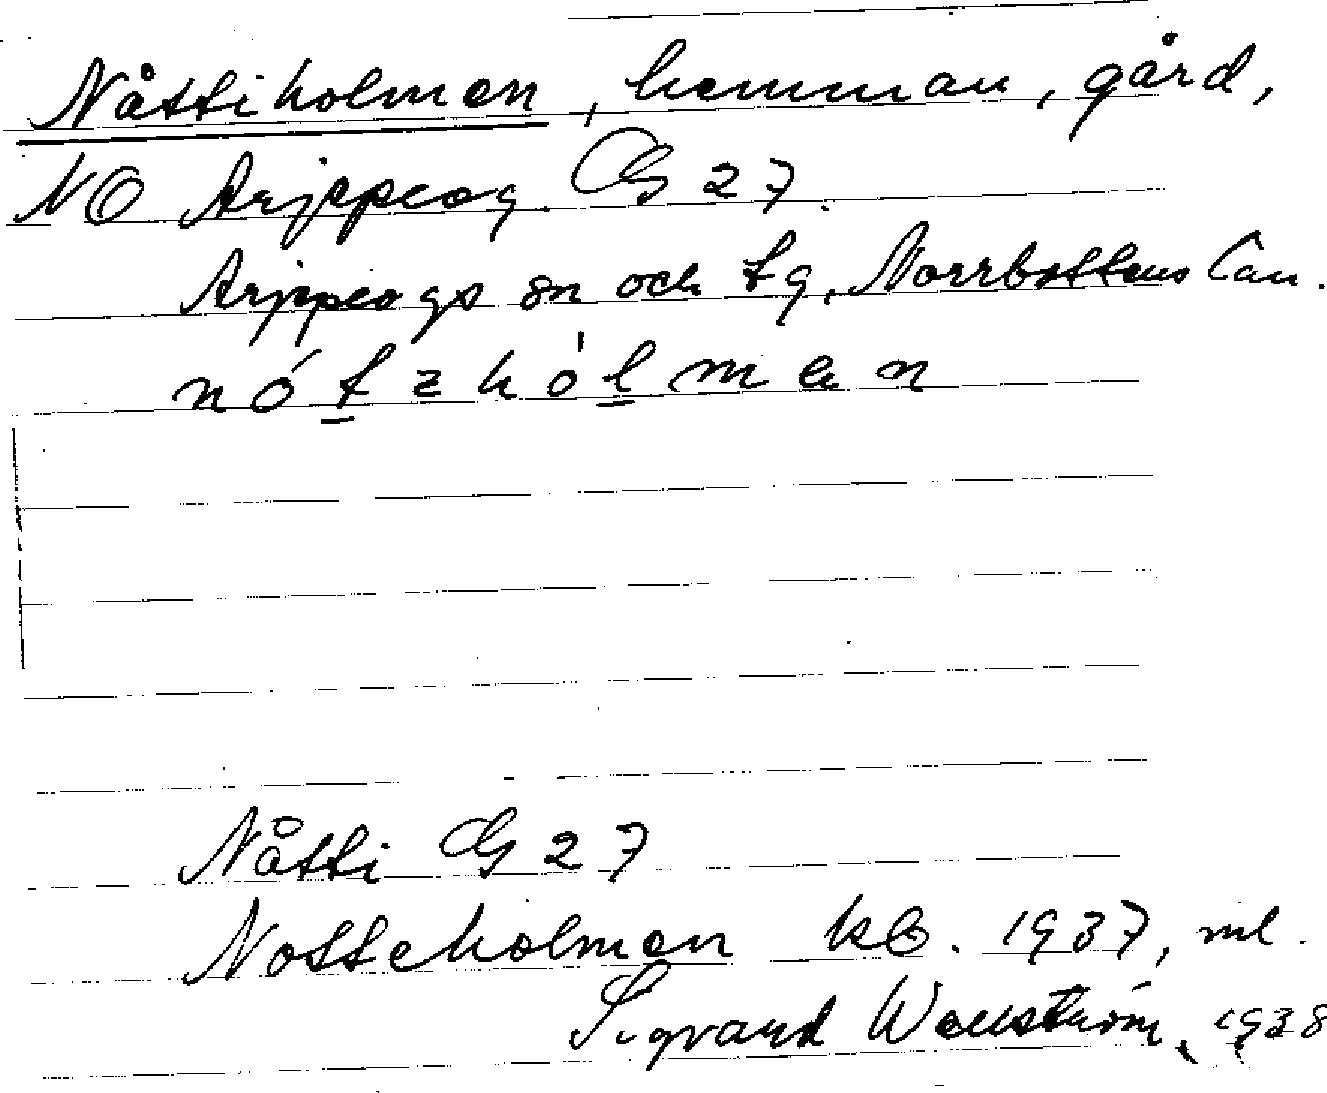 Nåttiholmen, hemman, gård,
NO Arjeplog. CG 27.
Arjeplogs sn och tg, Norrbottens län.
nótzhòlmen
Nåtti CG 27
Notteholmen kb. 1937, ml.
Sigvard Wallström, 1938